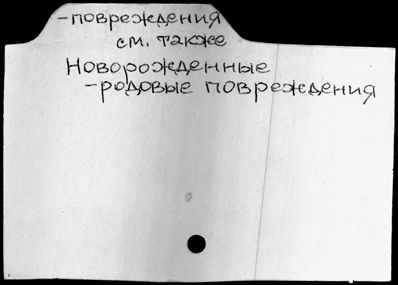 -повреждения
см. также
Новорожденные
-родовые повреждения